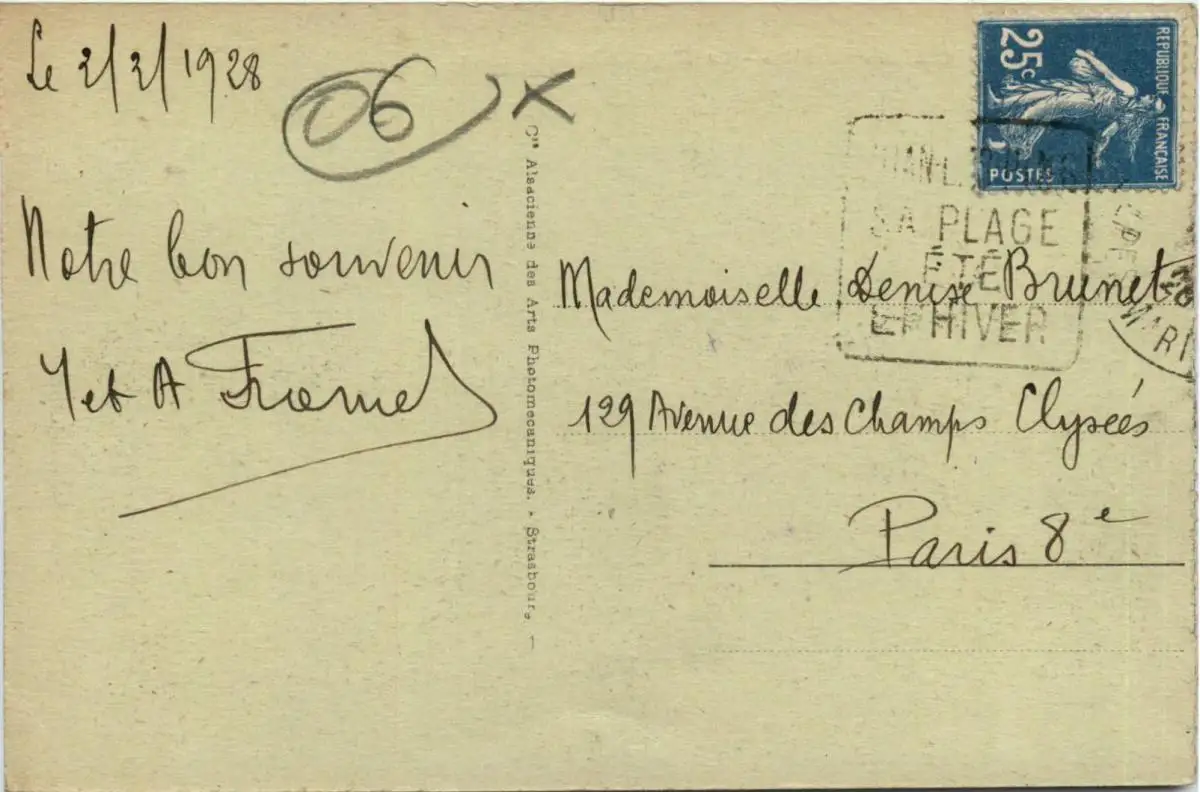 Le 2/2/1928
06 X
Notre bon souvenir
et A
Cie Alsacienne des Arts Photomecaniques. - Strasbourg. —
25c
REPUBLIQUE FRANÇAISE
POSTES
JUAN-LES-PINS
SA PLAGE
ÉTÉ
ET HIVER
ALPES MARI
Mademoiselle Denise Brunet
129 Avenue des Champs Elysées
Paris 8e